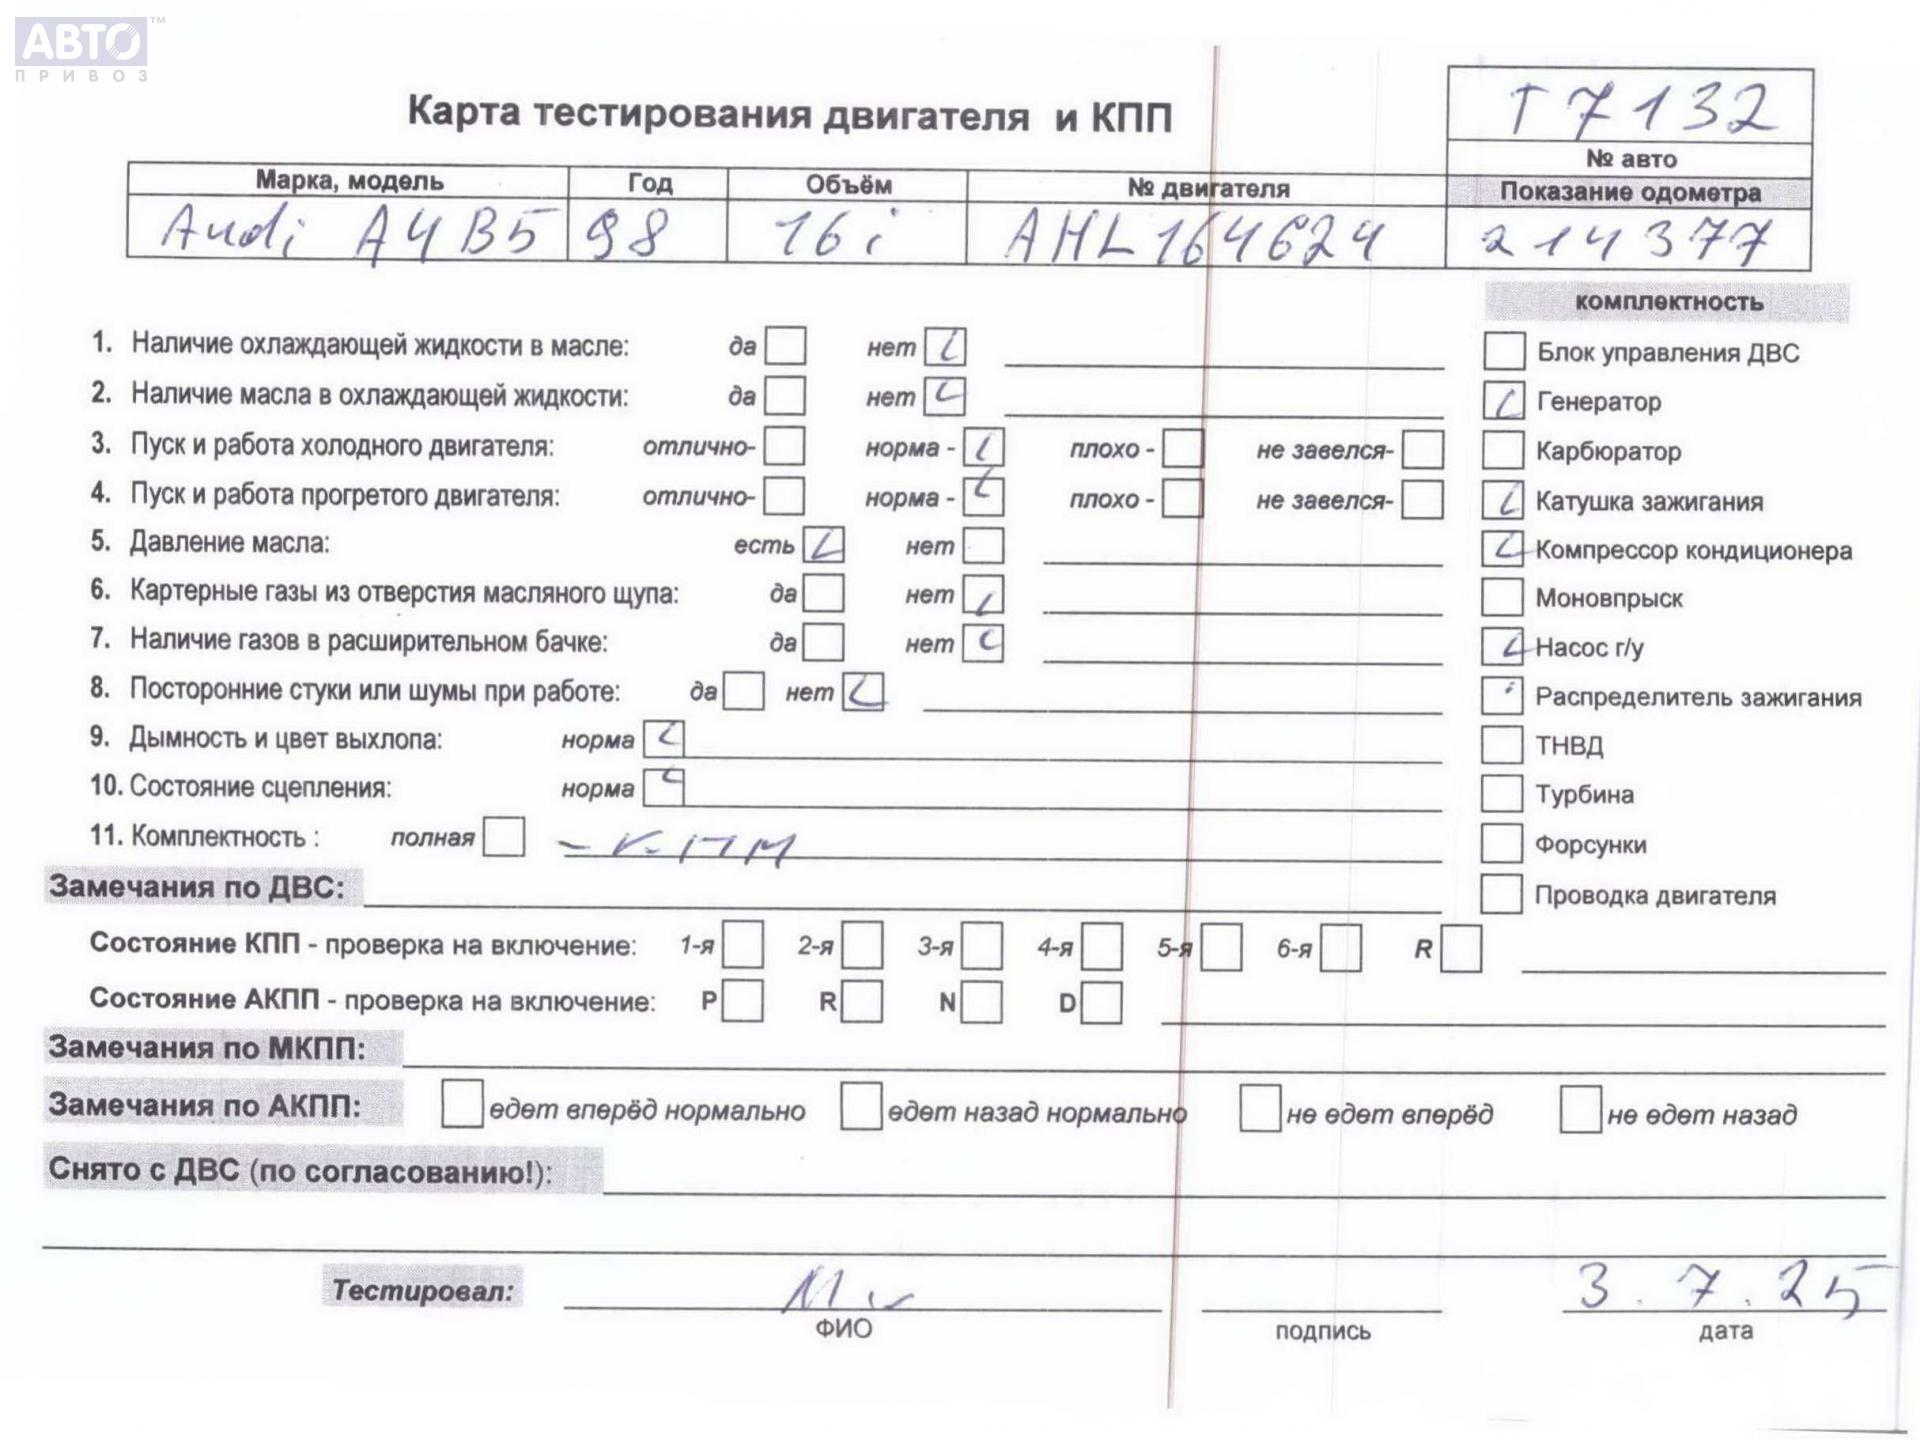 АВТО™
ПРИВОЗ
Карта тестирования двигателя и КПП
Т7132
№ авто
Марка, модель Год Объём № двигателя Показание одометра
Audi A4B5 98 16i AHL164624 214377
комплектность
1. Наличие охлаждающей жидкости в масле: да нет Блок управления ДВС
2. Наличие масла в охлаждающей жидкости: да нет Генератор
3. Пуск и работа холодного двигателя: отлично- норма - плохо - не завелся- Карбюратор
4. Пуск и работа прогретого двигателя: отлично- норма - плохо - не завелся- Катушка зажигания
5. Давление масла: есть нет Компрессор кондиционера
6. Картерные газы из отверстия масляного щупа: да нет Моновпрыск
7. Наличие газов в расширительном бачке: да нет Насос г/у
8. Посторонние стуки или шумы при работе: да нет Распределитель зажигания
9. Дымность и цвет выхлопа: норма ТНВД
10. Состояние сцепления: норма Турбина
11. Комплектность : полная Форсунки
Замечания по ДВС: Проводка двигателя
Состояние КПП - проверка на включение: 1-я 2-я 3-я 4-я 5-я 6-я R
Состояние АКПП - проверка на включение: P R N D
Замечания по МКПП:
Замечания по АКПП: едет вперёд нормально едет назад нормально не едет вперёд не едет назад
Снято с ДВС (по согласованию!):
Тестировал: 3.7.25
ФИО подпись дата